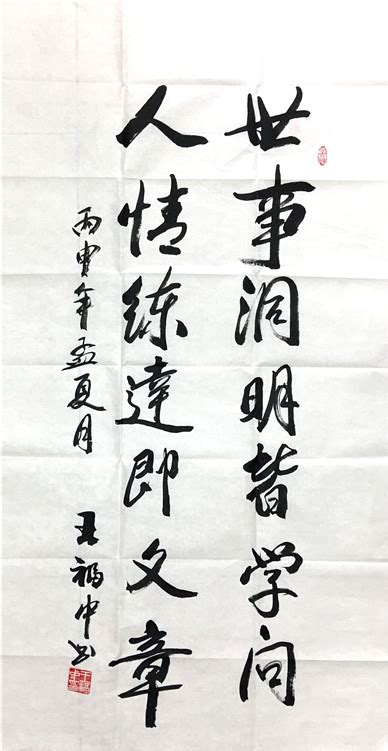 世事洞明皆学问
人情练达即文章
丙申年孟夏月 王福中书